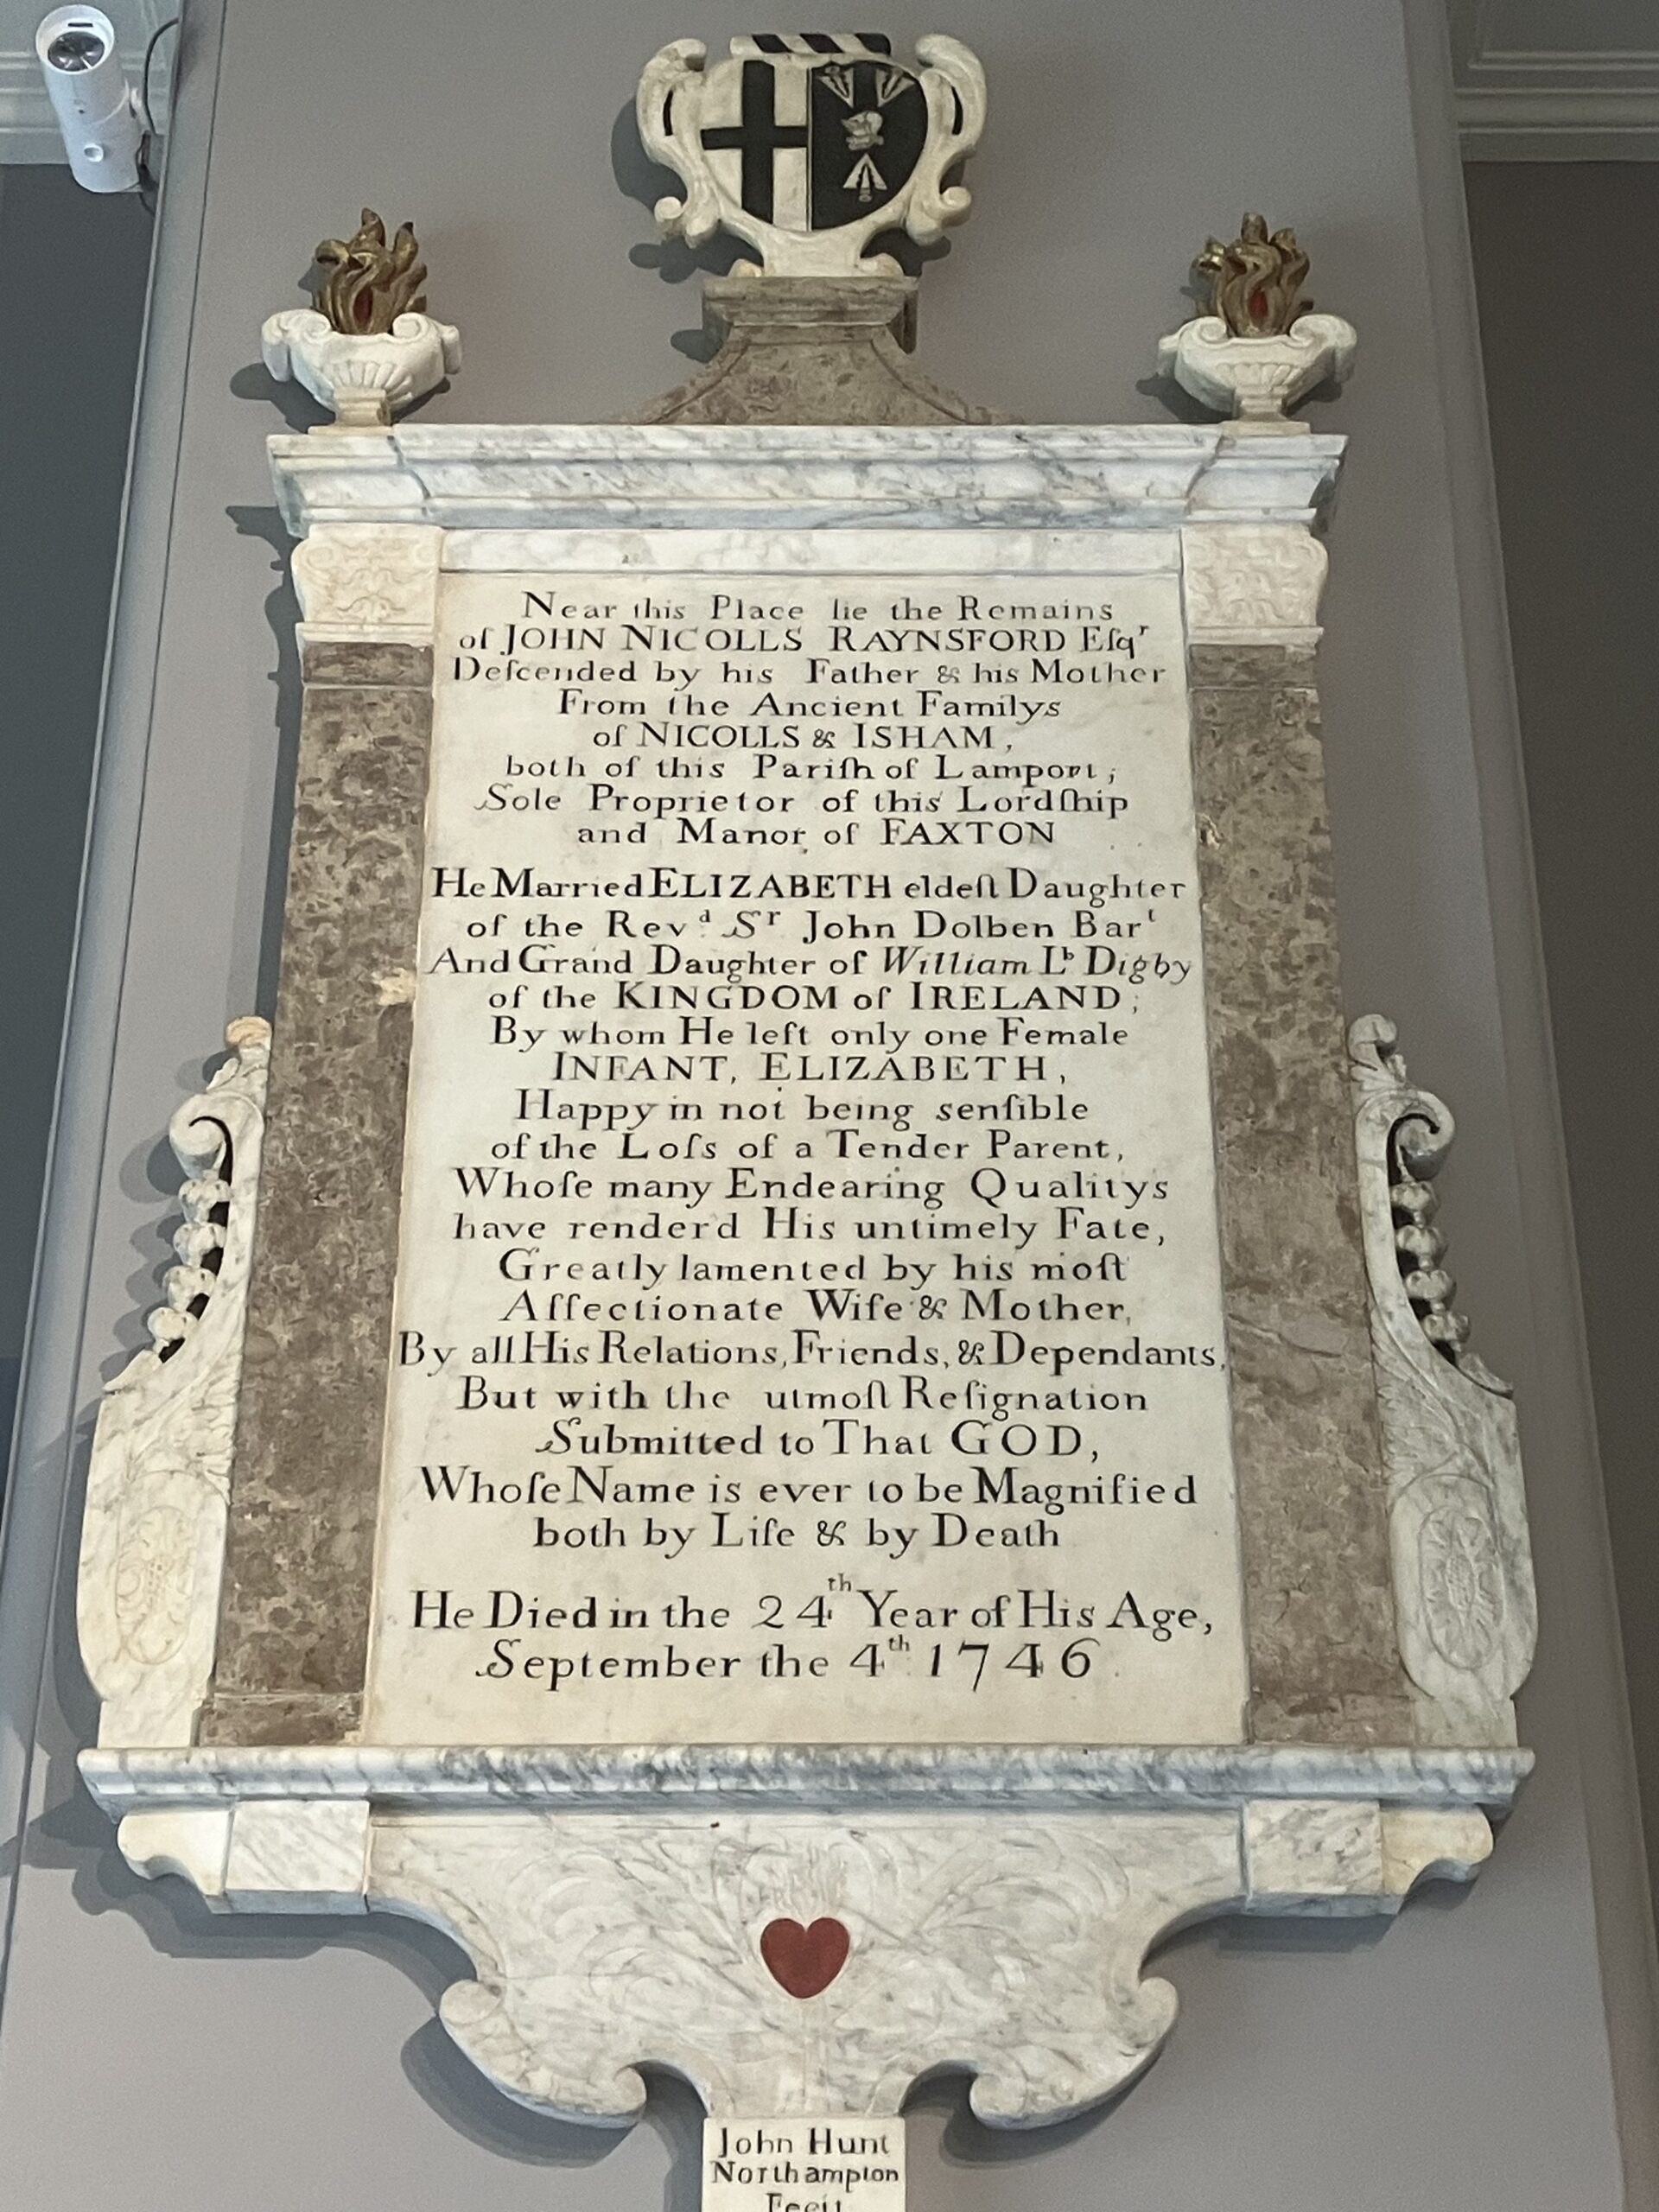 Near this Place lie the Remains
of JOHN NICOLLS RAYNSFORD Eſqʳ
Deſcended by his Father & his Mother
From the Ancient Familys
of NICOLLS & ISHAM,
both of this Pariſh of Lamport;
Sole Proprietor of this Lordſhip
and Manor of FAXTON
He Married ELIZABETH eldeſt Daughter
of the Revᵈ. Sʳ John Dolben Barᵗ
And Grand Daughter of William Lᵇ Digby
of the KINGDOM of IRELAND;
By whom He left only one Female
INFANT, ELIZABETH,
Happy in not being senſible
of the Loſs of a Tender Parent,
Whoſe many Endearing Qualitys
have renderd His untimely Fate,
Greatly lamented by his moſt
Affectionate Wife & Mother,
By all His Relations, Friends, & Dependants,
But with the utmoſt Reſignation
Submitted to That GOD,
Whoſe Name is ever to be Magnified
both by Life & by Death
He Died in the 24ᵗʰ Year of His Age,
September the 4ᵗʰ 1746.
John Hunt
Northampton
Fecit